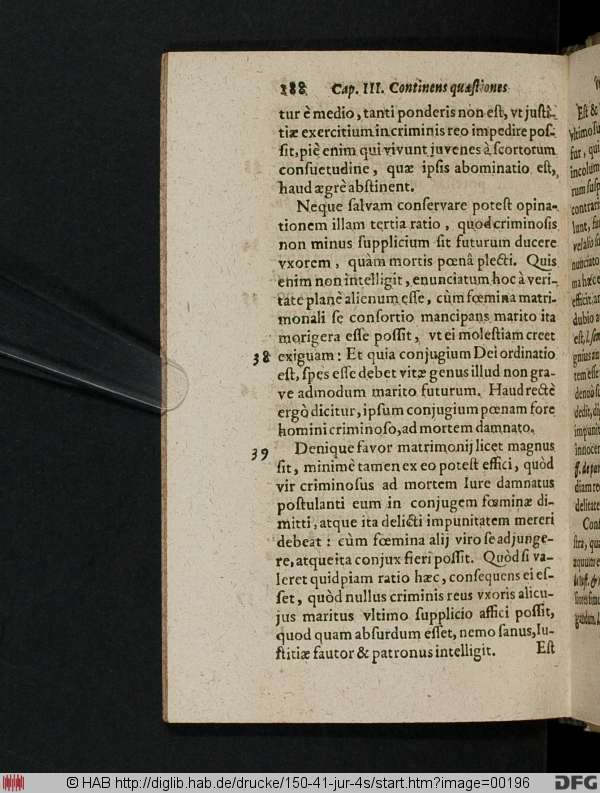 188 Cap. III. Continens quæstiones
tur è medio, tanti ponderis non est, vt justi-
tiæ exercitium in criminis reo impedire pos-
sit, piè enim qui vivunt juvenes à scortorum
consuetudine, quæ ipsis abominatio est,
haud ægrè abstinent.
Neque salvam conservare potest opina-
tionem illam tertia ratio, quod criminosis
non minus supplicium sit futurum ducere
vxorem, quàm mortis pœnâ plecti. Quis
enim non intelligit, enunciatum hoc à veri-
tate planè alienum esse, cùm fœmina matri-
moniali se consortio mancipans marito ita
morigera esse possit, vt ei molestiam creet
38 exiguam: Et quia conjugium Dei ordinatio
est, spes esse debet vitæ genus illud non gra-
ve admodum marito futurum. Haud rectè
ergò dicitur, ipsum conjugium pœnam fore
homini criminoso, ad mortem damnato.
39 Denique favor matrimonij licet magnus
sit, minimè tamen ex eo potest effici, quòd
vir criminosus ad mortem Iure damnatus
postulanti eum in conjugem fœminæ di-
mitti, atque ita delicti impunitatem mereri
debeat: cùm fœmina alij viro se adjunge-
re, atque ita conjux fieri possit. Quòd si va-
leret quidpiam ratio hæc, consequens ei es-
set, quòd nullus criminis reus vxoris alicu-
jus maritus vltimo supplicio affici possit,
quod quam absurdum esset, nemo sanus, Iu-
stitiæ fautor & patronus intelligit. Est
Est &
vltimo su
fur, qui
incolum
rum susp
contrari
lunt, fu
vel alio s
nunciato
ma hæc e
efficit, ar
dubio a
est, l. sem
gnius an
tem esse
denuò s
dedit, dij
impunit
innocen
ff. de pœ
diam re
delitate
Conf
stra, qu
© HAB http://diglib.hab.de/drucke/150-41-jur-4s/start.htm?image=00196
DFG